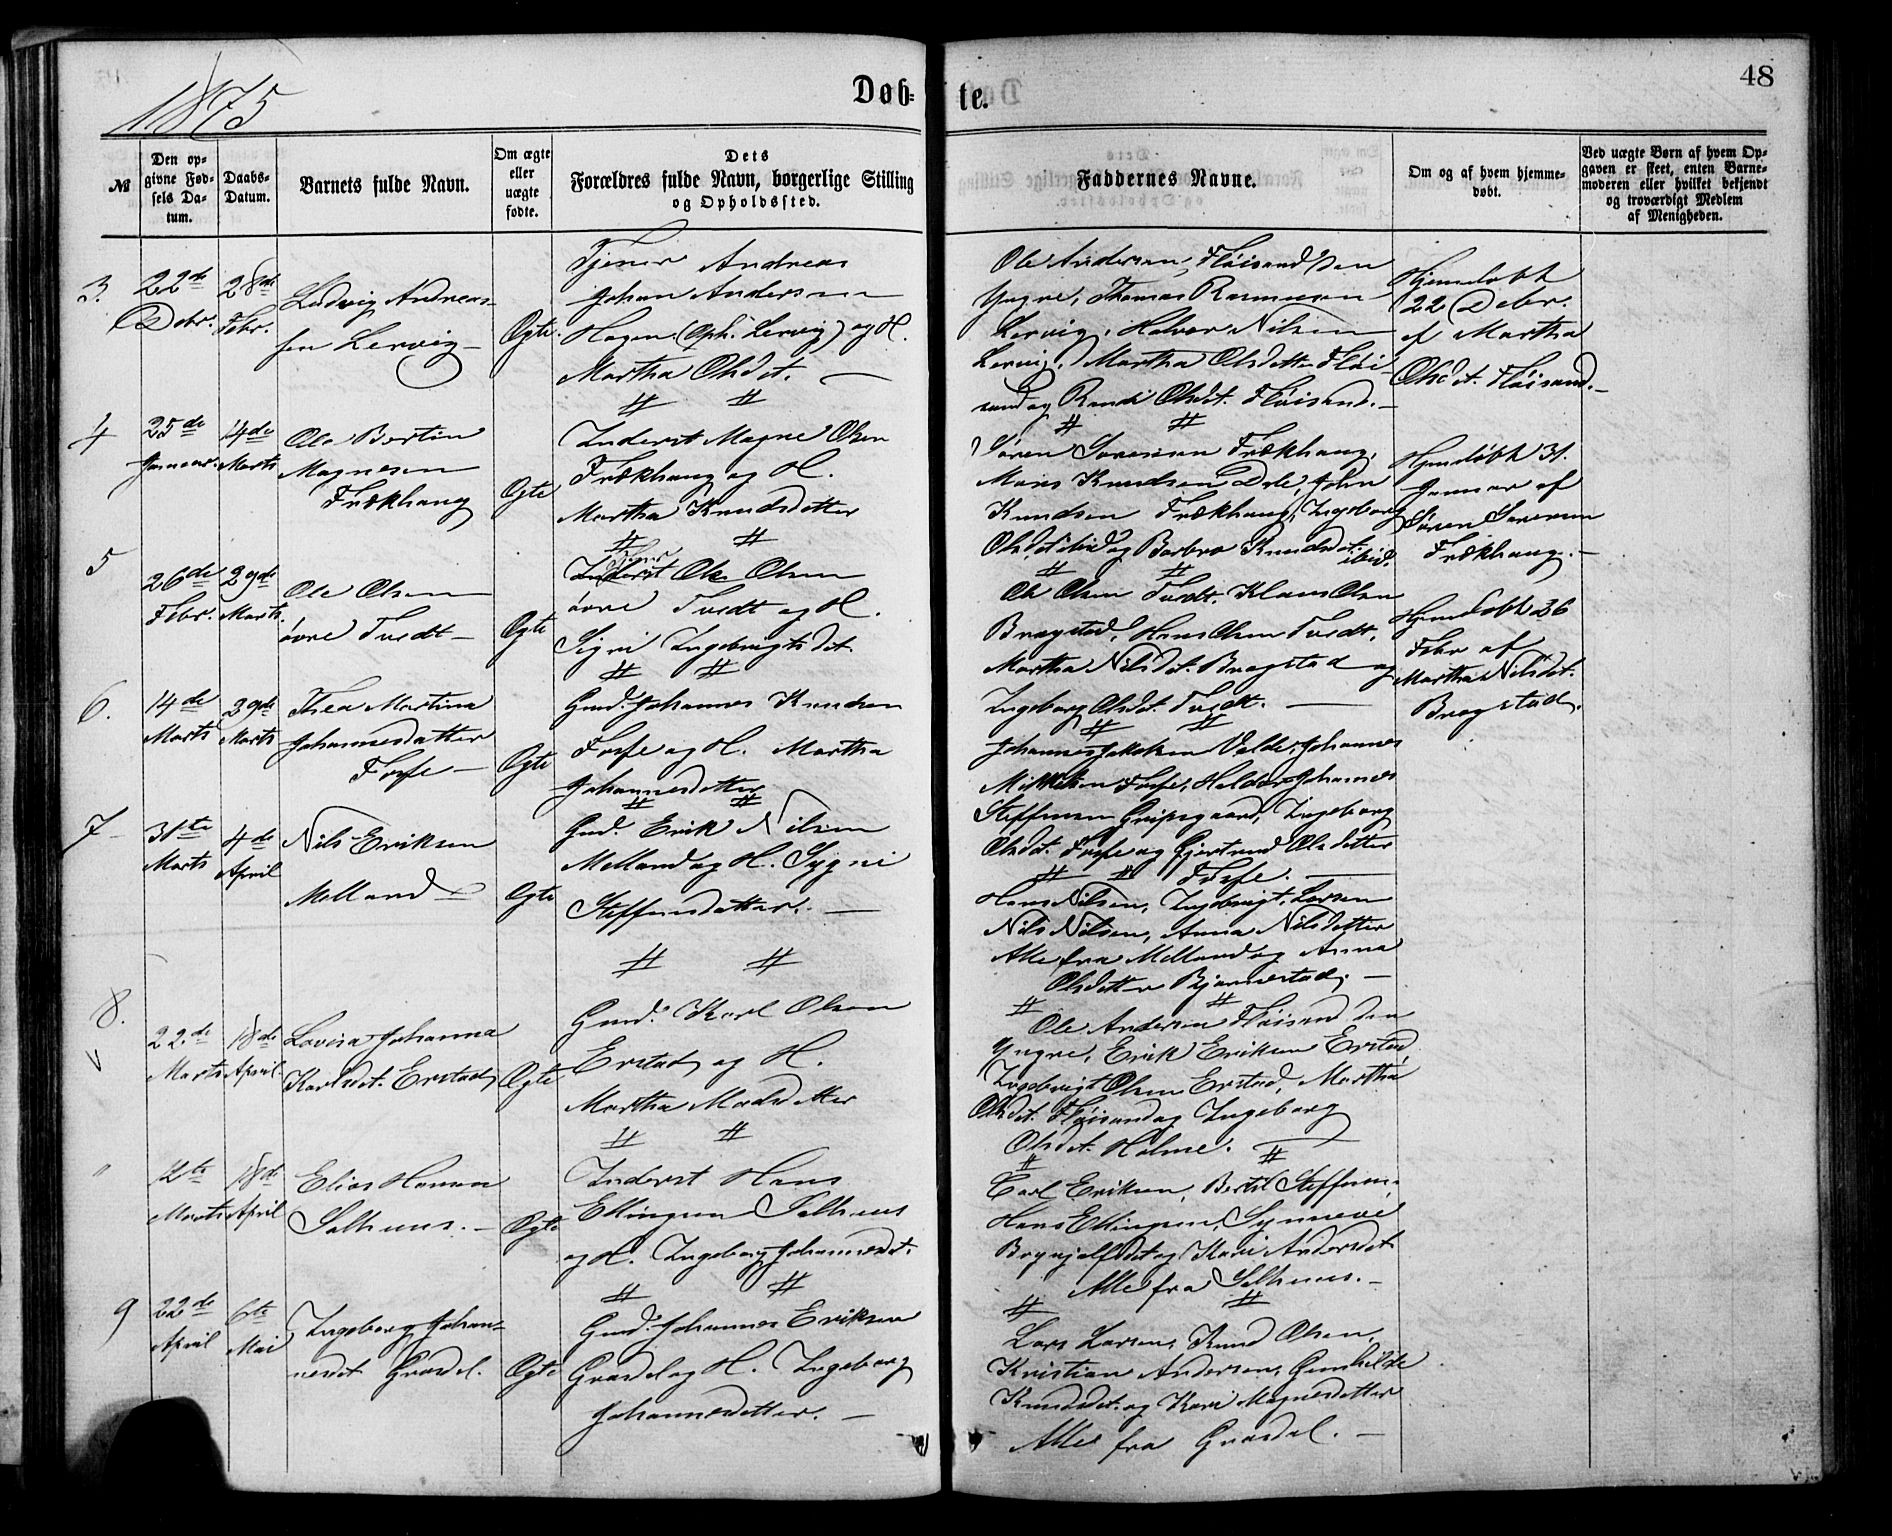 1875
Døb-
te.
48
№
Den op-
givne Fød-
sels Da-
tum.
Daabs-
Datum.
Barnets fulde Navn.
Om ægte
eller
uægte
fødte.
Dets
Forældres fulde Navn, borgerlige Stilling
og Opholdssted.
Faddernes Navne.
Om og af hvem hjemme-
døbt.
Ved uægte Børn af hvem Op-
gaven er skeet, enten Barne-
moderen eller hvilket bekjendt
og troværdigt Medlem
af Menigheden.
3.
22de
Debr.
28de
Febr.
Ludvig Andreas-
sen Lervig
Ægte.
Tjener Andreas
Johan Andersen
Hagen (Oph. Lervig) og H.
Martha Olsdet.
Ole Andersen Fløisand den
Yngre, Thomas Rasmusen
Lervig, Halvor Nilsen
Lervig, Martha Olsdetter Fløi-
sand og Randi Olsdet. Fløisand.
Hjemdøbt
22 Debr.
af Martha
Olsdet. Fløisand.
4
25de
Januar.
14de
Marts
Ole Bertin
Magnesen
Frækhaug
Ægte
Inderst Magne Olsen
Frækhaug og H.
Martha Knudsdetter
Søren Sørensen Frækhaug,
Mons Knudsen Dale, John
Knudsen Frækhaug, Ingeborg
Olsdet ibid og Barbro Knudsdet. ibid.
Hjemdøbt 31.
Januar af
Søren Sørensen
Frækhaug.
5
26de
Febr.
29de
Marts.
Ole Olsen
øvre Tvedt
Ægte
Inderst Ole Olsen
øvre Tvedt og H.
Sigri Ingebrigtsdet.
Ole Olsen Tvedt, Klaus Olsen
Bragstad, Hans Olsen Tvedt,
Martha Nilsdet. Bragstad og
Ingeborg Olsdet. Tvedt.
Hjemdøbt 26
Febr af
Martha Nilsdet.
Bragstad.
6.
14de
Marts
29de
Marts
Thea Martina
Johannesdatter
Fosse
Ægte
Gmd. Johannes Knudsen
Fosse og H. Martha
Johannesdetter
Johannes Jakobsen Valde, Johannes
Mikkelsen Fosse, Haldor Johannes
Steffensen Gripsgaard, Ingeborg
Olsdet. Fosse og Gjertrud Olsdetter
Fosse.
7
31te
Marts
4de
April
Nils Eriksen
Melland
Ægte
Gmd. Erik Nilsen
Melland og H. Sygni
Steffensdatter.
Hans Nilsen, Ingebrigt Larsen
Nils Nilsen, Anna Nilsdetter
Alle fra Melland og Anna
Olsdetter Bjørnestad.
8.
22.de
Marts
18de
April
Lovisa Johanna
Karlsdet. Erstad
Ægte
Gmd. Karl Olsen
Erstad og H.
Martha Madsdetter
Ole Andersen Fløisand den
Yngre, Erik Eriksen Erstad,
Ingebrigt Olsen Erstad, Martha
Olsdet. Fløisand og Ingeborg
Olsdet. Holme.
"
12te
Marts
18de
April
Elias Hansen
Salhus.
Ægte
Inderst Hans
Ellingsen Salhus
og H. Ingeborg Johannesdet.
Carl Eriksen, Bertil Steffensen
Hans Ellingsen, Synneve
Brynjolfsdet og Kari Andersdet.
Alle fra Salhus.
9
22de
April
6te
Mai
Ingeborg Johan-
nesdet Grasdal.
Ægte
Gmd. Johannes Eriksen
Grasdal og H. Ingeborg
Johannesdetter.
Lars Larsen, Knud Olsen,
Kristian Andersen, Gunhilde
Knudsdet. og Kari Magnesdetter
Alle fra Grasdal.